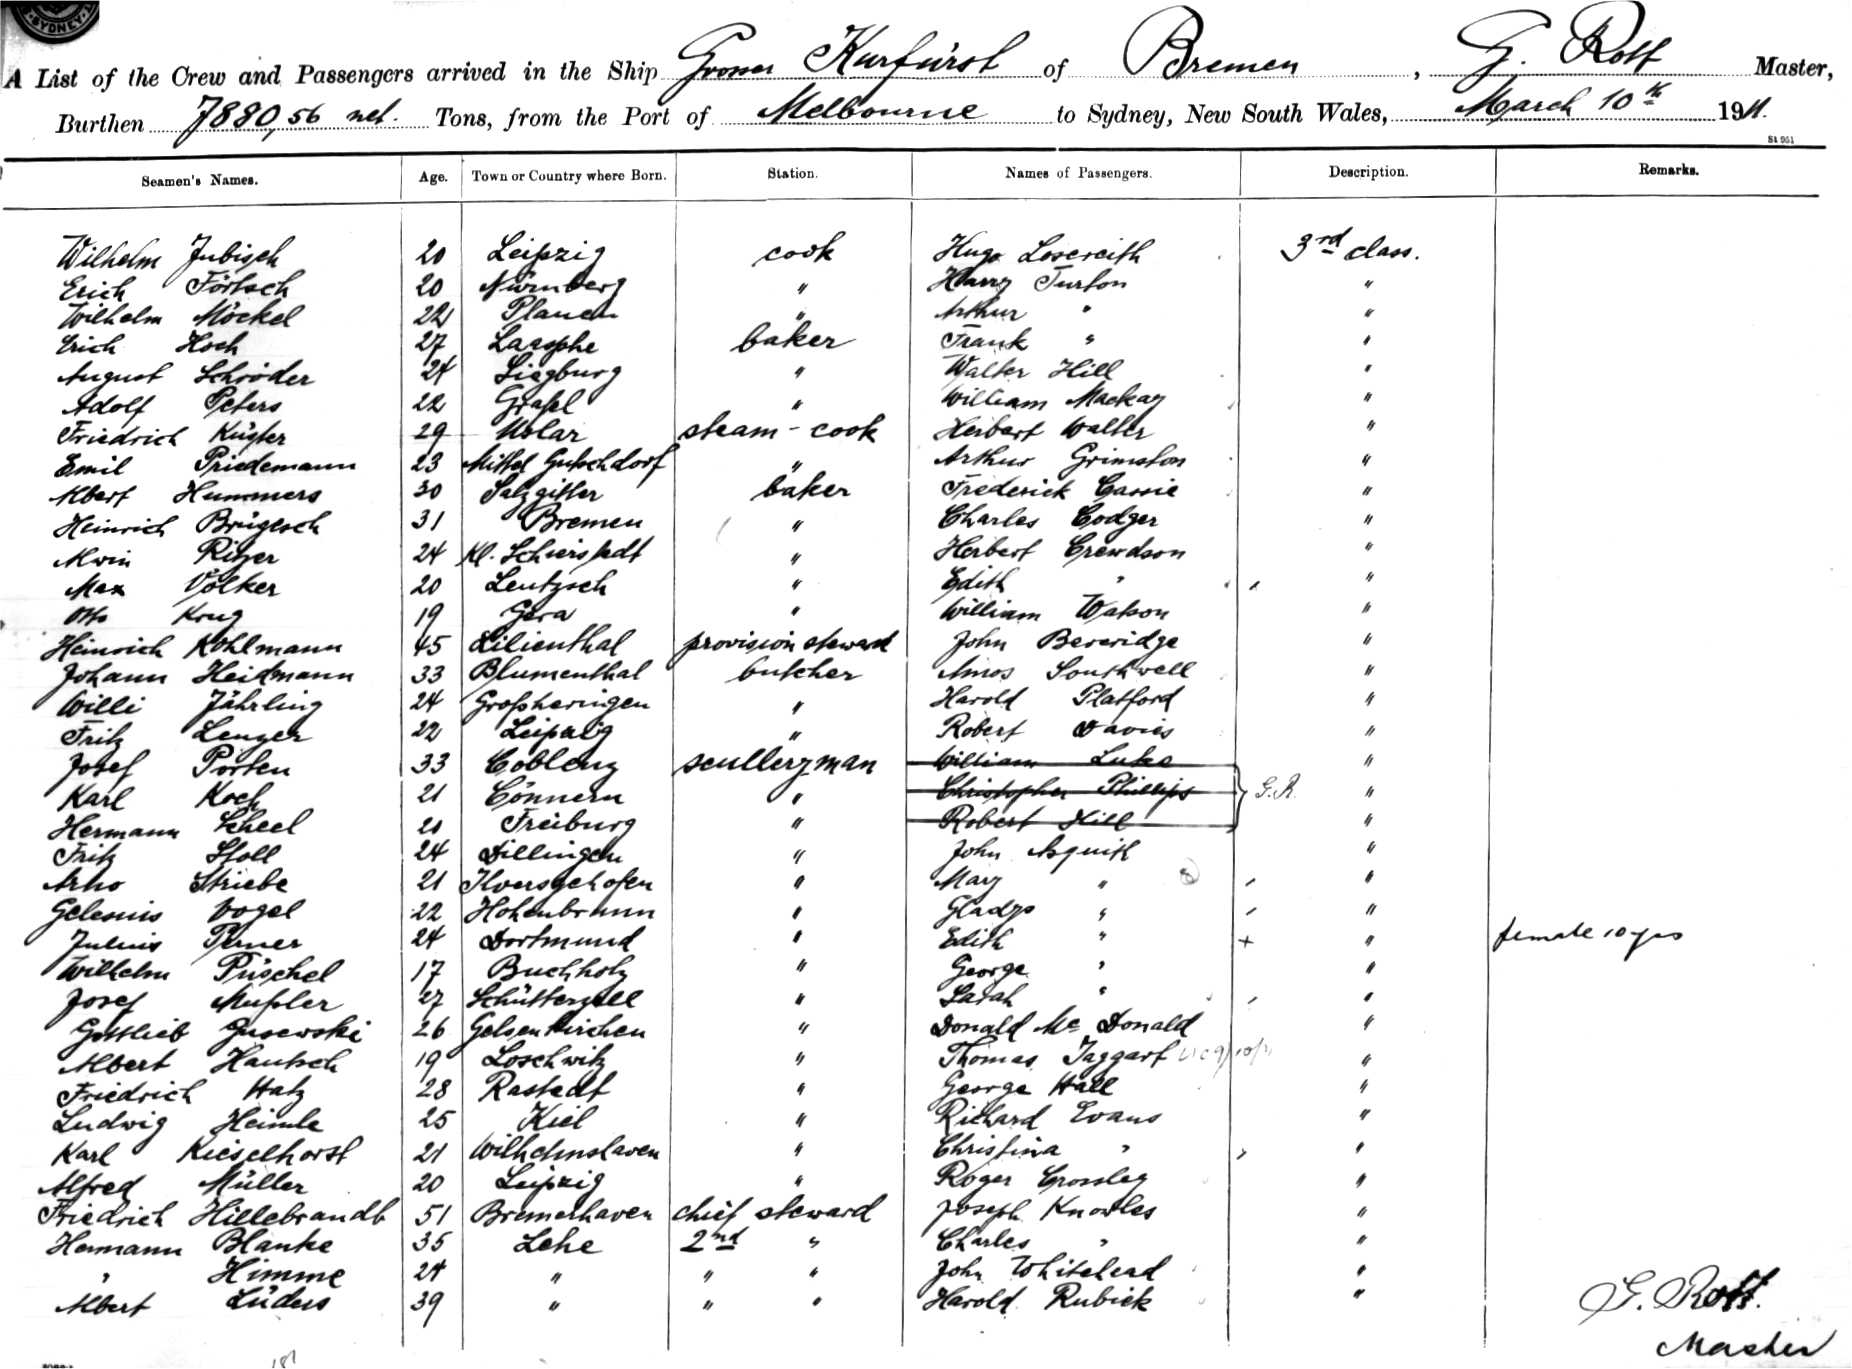 SYDNEY
A List of the Crew and Passengers arrived in the Ship Grosser Kurfürst of Bremen, G. Rott Master,
Burthen 7880,56 net. Tons, from the Port of Melbourne to Sydney, New South Wales, March 10th 1911.
St 951
Seamen's Names. Age. Town or Country where Born. Station. Names of Passengers. Description. Remarks.
Wilhelm Jubisch 20 Leipzig cook Hugo Losereith 3rd class.
Erich Förtsch 20 Nürnberg " Harry Turton "
Wilhelm Möckel 22 Plauen " Arthur " "
Erich Hoch 27 Laasphe baker Frank " "
August Schröder 24 Siegburg " Walter Hill "
Adolf Peters 22 Grasel " William Mackay "
Friedrich Küster 29 Uslar steam-cook Herbert Walter "
Emil Priedemann 23 Mittel Gutschdorf " Arthur Grimston "
Albert Hummers 30 Salzgitter baker Frederick Cassie "
Heinrich Brügesch 31 Bremen " Charles Codger "
Alwin Ritzer 24 Kl. Schierstedt " Herbert Crewdson "
Max Völker 20 Leutzsch " Edith " "
Otto Krug 19 Gera " William Watson "
Heinrich Kohlmann 45 Lilienthal provision steward John Beveridge "
Johann Heidmann 33 Blumenthal butcher Amos Southwell "
Willi Jährling 24 Großheringen " Harold Platford "
Fritz Lenzer 22 Leipzig " Robert Davies "
Josef Porten 33 Coblenz sculleryman William Luke "
Karl Koch 21 Cönnern " Christopher Phillips G.R. "
Hermann Scheel 20 Freiburg " Robert Hill "
Fritz Stoll 24 Dillingen " John Asquith "
Arno Striebe 21 Ilversgehofen " Mary " "
Vogel 22 Hohenbrunn " Gladys " "
Julius Perner 24 Dortmund " Edith " + " female 10 yrs
Wilhelm Püschel 17 Buchholz " George " "
Josef Mußler 27 " Sarah " "
Gottlieb Gusewski 26 Gelsenkirchen " Donald Mc Donald "
Albert Hautsch 19 Loschwitz " Thomas Taggart "
Friedrich Hatz 28 Rastedt " George Hall "
Ludwig Heimle 25 Kiel " Richard Evans "
Karl Kieselhorst 21 Wilhelmshaven " Christina " "
Alfred Müller 20 Leipzig " Roger Crossley "
Friedrich Hillebrandt 51 Bremerhaven chief steward Joseph Knowles "
Hermann Blanke 35 Lehe 2nd " Charles " "
" Himme 24 " " " John Whitehead "
Albert Lüders 39 " " " Harold Rubick "
G. Rott.
Master